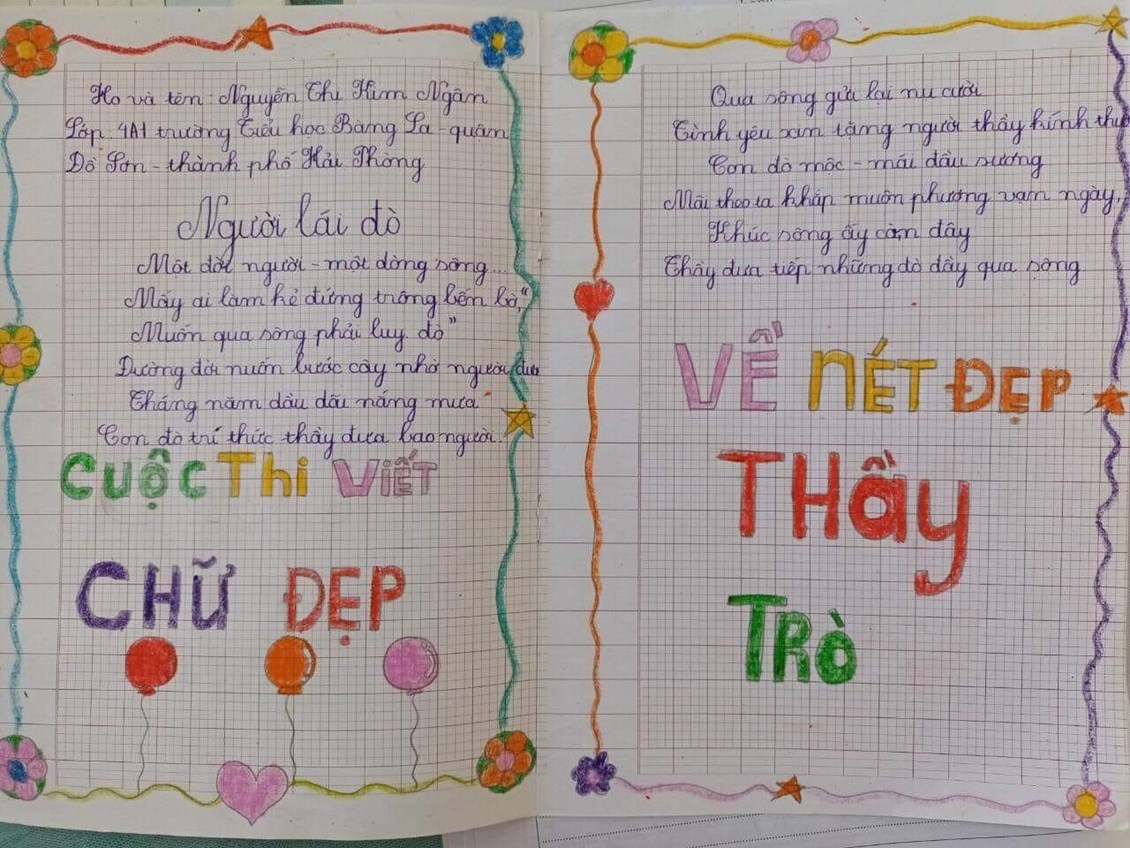 Họ và tên: Nguyễn Thị Kim Ngân
Lớp 4A1 trường Tiểu học Bàng La - quận
Đồ Sơn - thành phố Hải Phòng
Người lái đò
Một đời người - một dòng sông...
Mấy ai làm kẻ đứng trông bến bờ,"
Muốn qua sông phải luy đò"
Đường đời muốn bước cậy nhờ người đưa
Tháng năm dầu dãi nắng mưa
Con đò trí thức thầy đưa bao người.
CUỘC THI VIẾT
CHỮ ĐẸP
Qua sông gửi lại nụ cười
Tình yêu xin tặng người thầy kính thươ
Con đò mộc - mái đầu sương
Mãi theo ta khắp muôn phương vạn ngày,
Khúc sông ấy còn đây
Thầy đưa tiếp những đò đầy qua sông
VỀ NÉT ĐẸP
THẦY
TRÒ